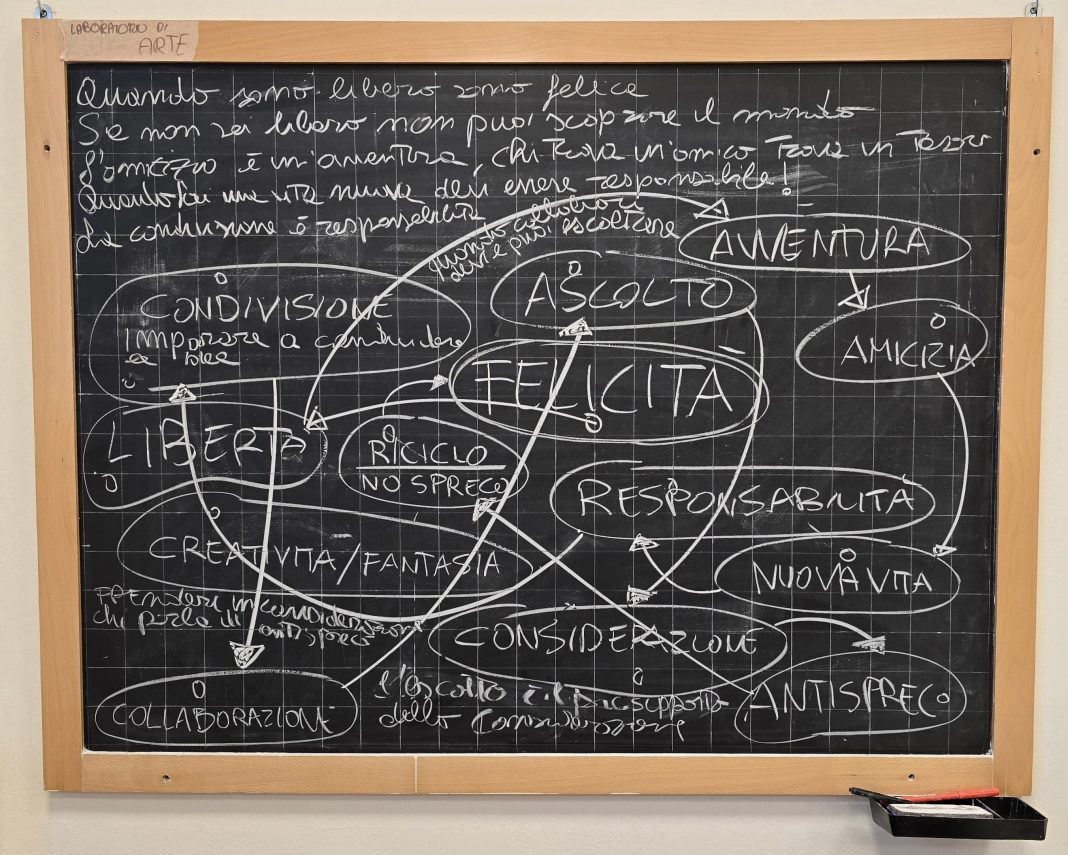 LABORATORIO DI
ARTE
Quando sono libero sono felice
Se non sei libero non puoi scoprire il mondo
L'amicizia è un'avventura, chi trova un'amico trova un tesoro
Quando hai una vita nuova devi essere responsabile!
La condivisione è responsabilità
Quando collabori
devi e puoi ascoltare
AVVENTURA
CONDIVISIONE
imparare a condividere
le idee
ASCOLTO
AMICIZIA
FELICITA
LIBERTA
RICICLO
NO SPRECO
RESPONSABILITA
CREATIVITA/FANTASIA
NUOVA VITA
PRENDERE in considerazione
chi parla di antispreco
CONSIDERAZIONE
L'ascolto è il presupposto
della considerazione
COLLABORAZIONE
ANTISPRECO